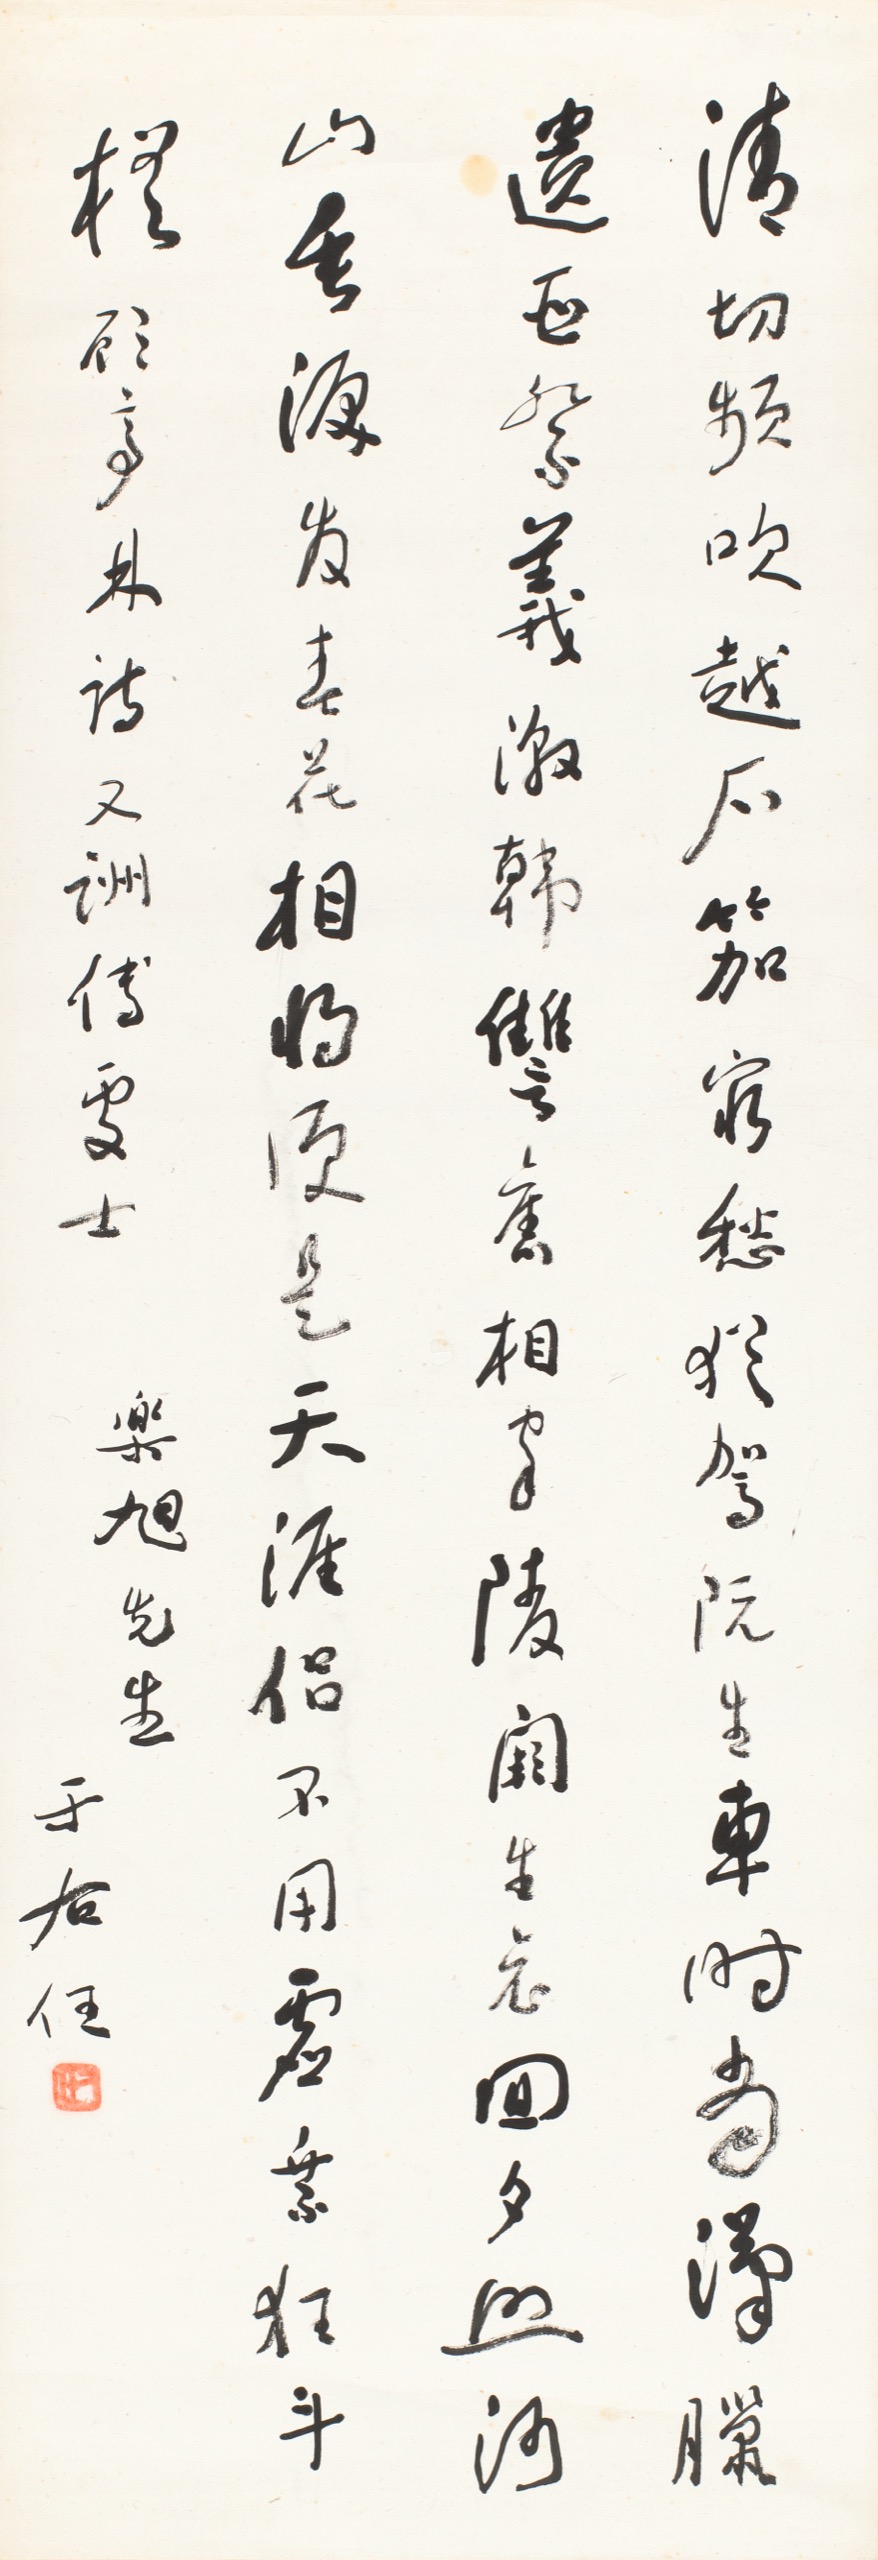 清切频吹越石笳窮愁猶駕阮生車时當漢臘
遺臣祭義激韓讎舊相家陵闕生哀回夕照河
山垂淚发春花相将便是天涯侣不用虚乘狂斗
槎顾亭林詩又詶傅處士
樂旭先生
于右任